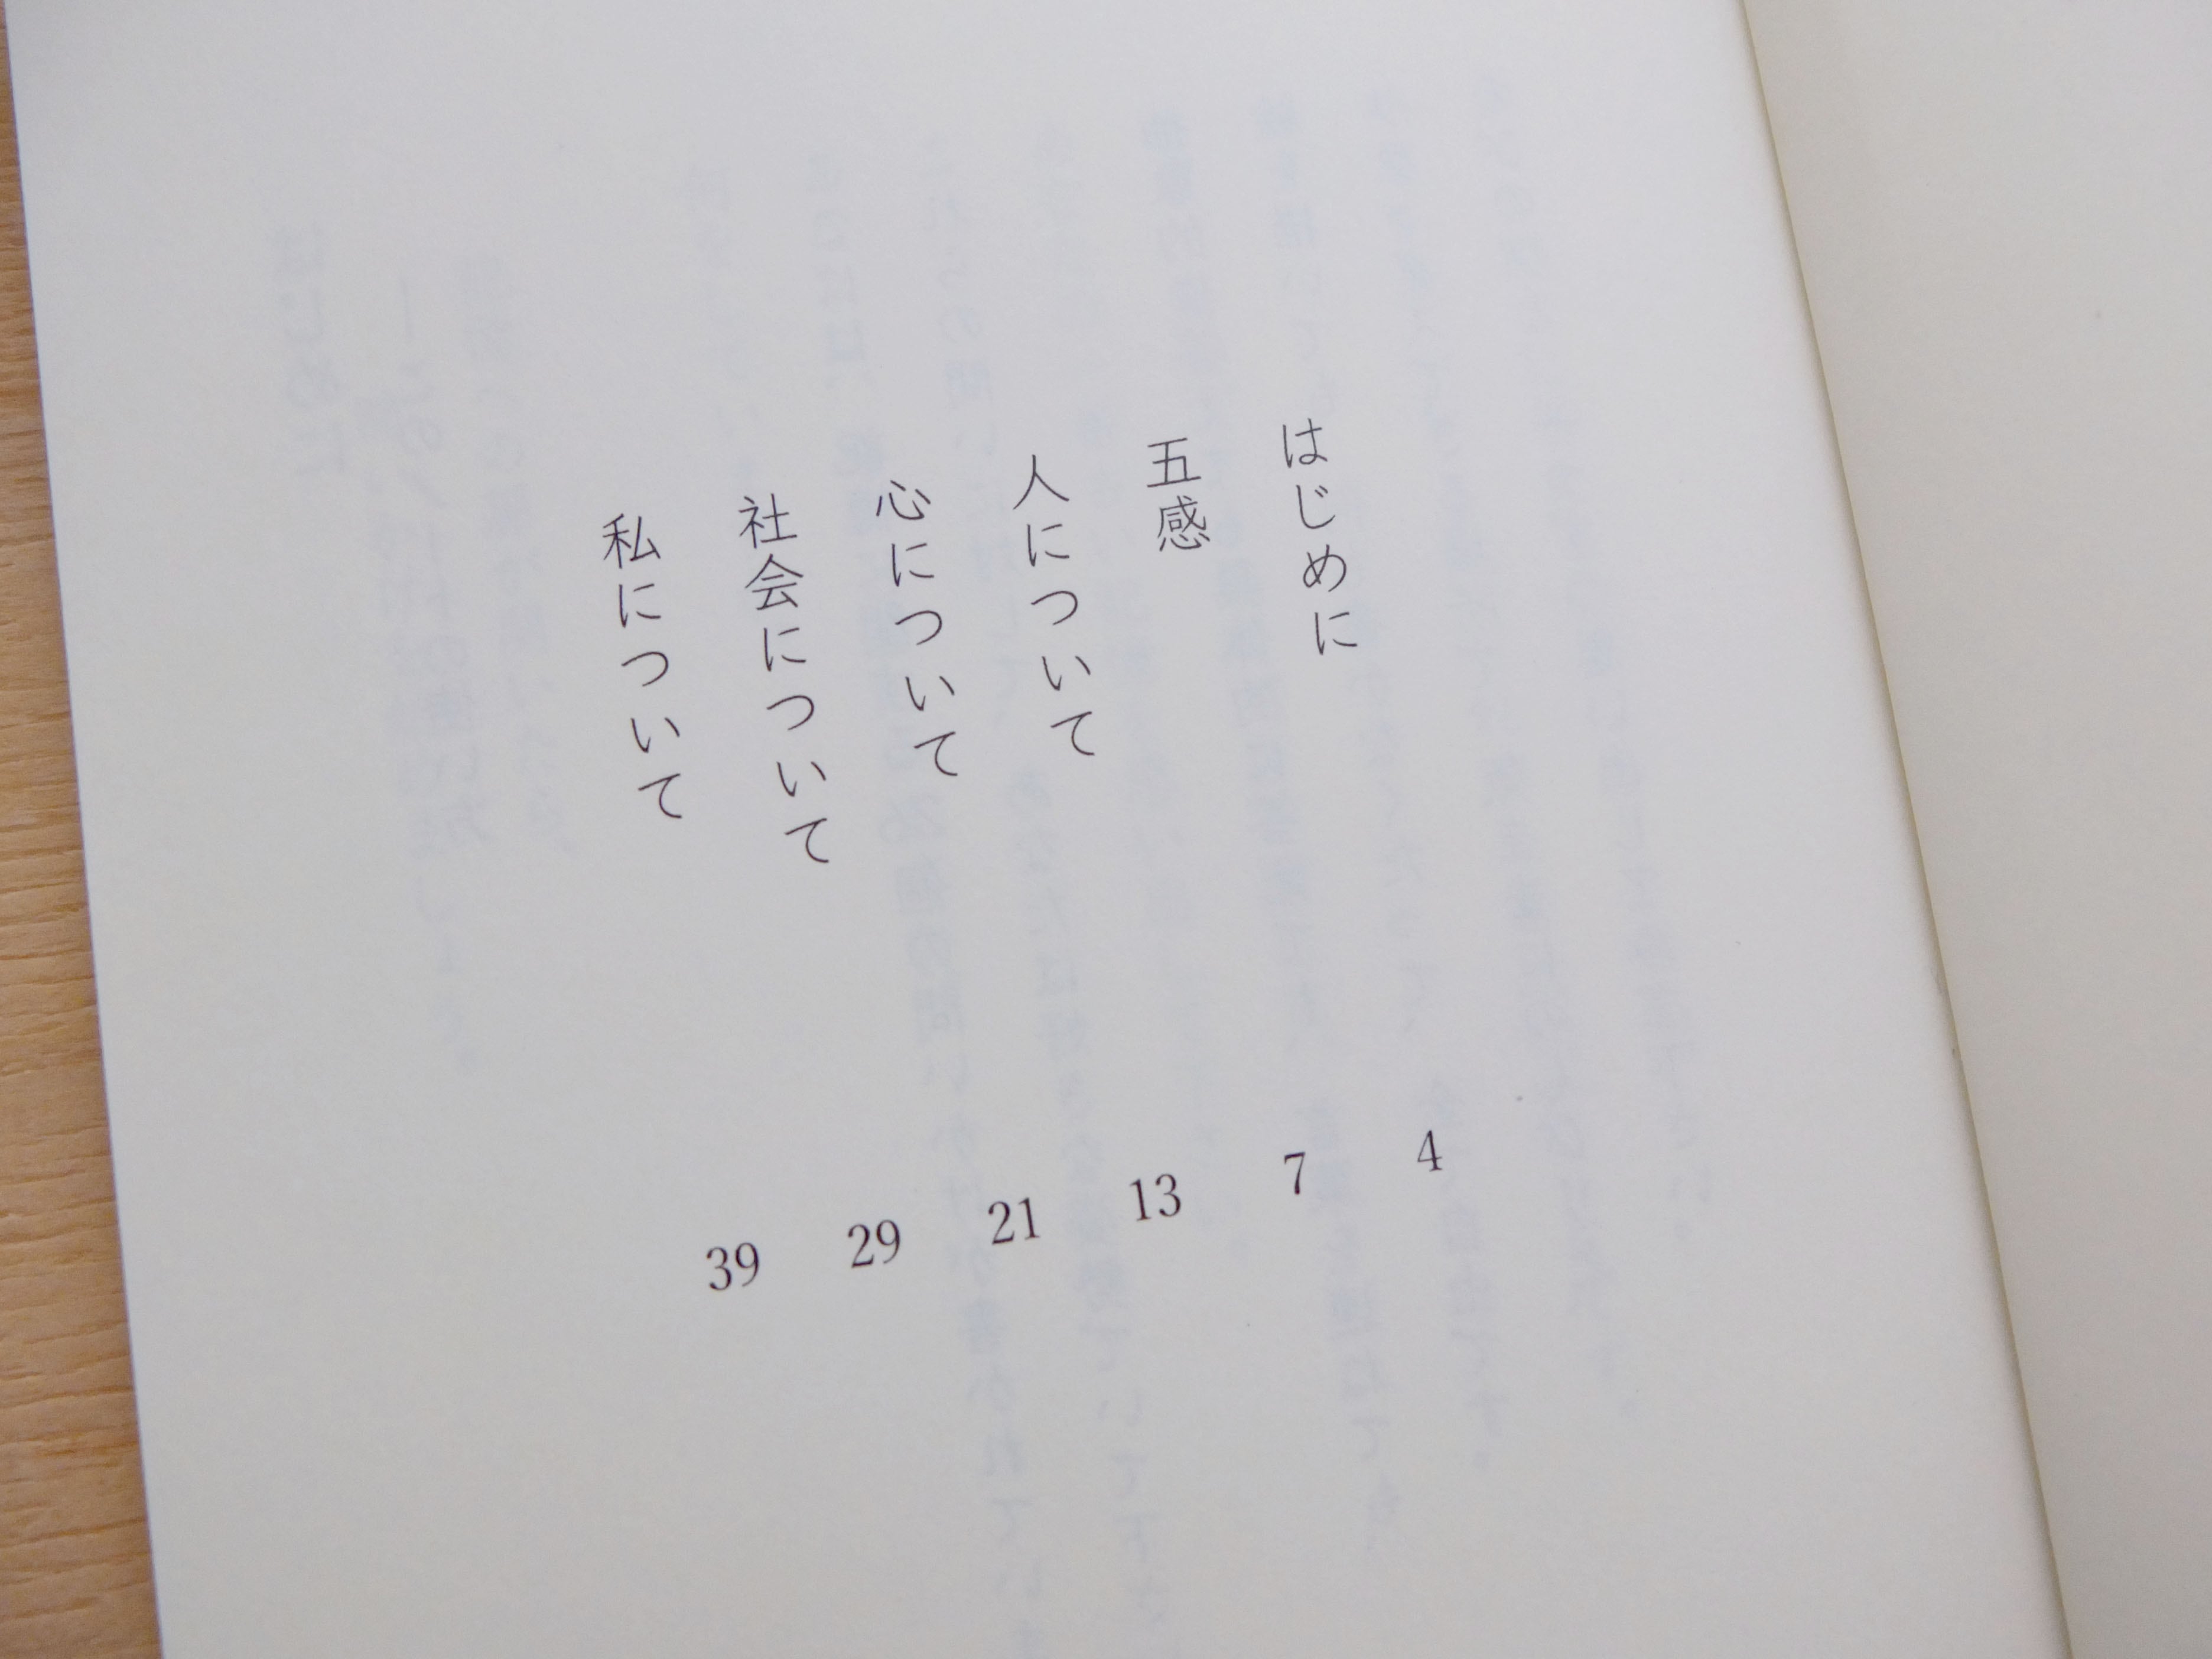 はじめに 4
五感 7
人について 13
心について 21
社会について 29
私について 39